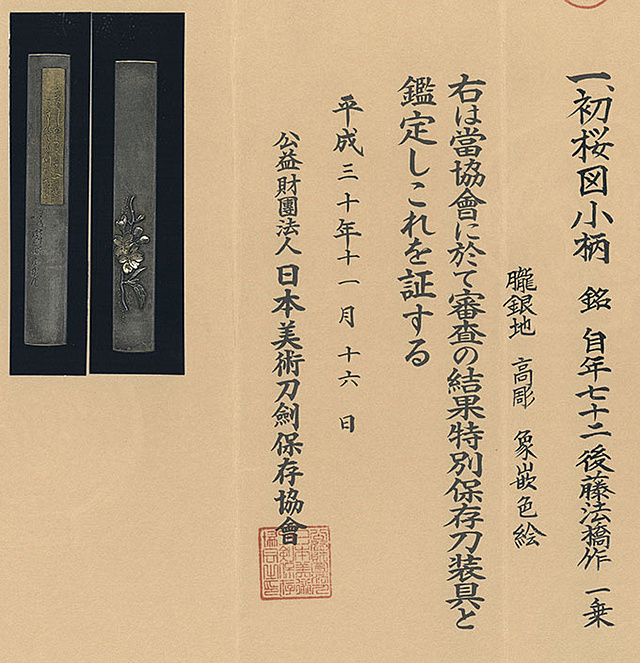 一、初桜図小柄 銘 自年七十二後藤法橋作 一乗
朧銀地 高彫 象嵌色絵
右は當協會に於て審査の結果特別保存刀装具と
鑑定しこれを証する
平成三十年十一月十六日
公益財團法人日本美術刀劍保存協會